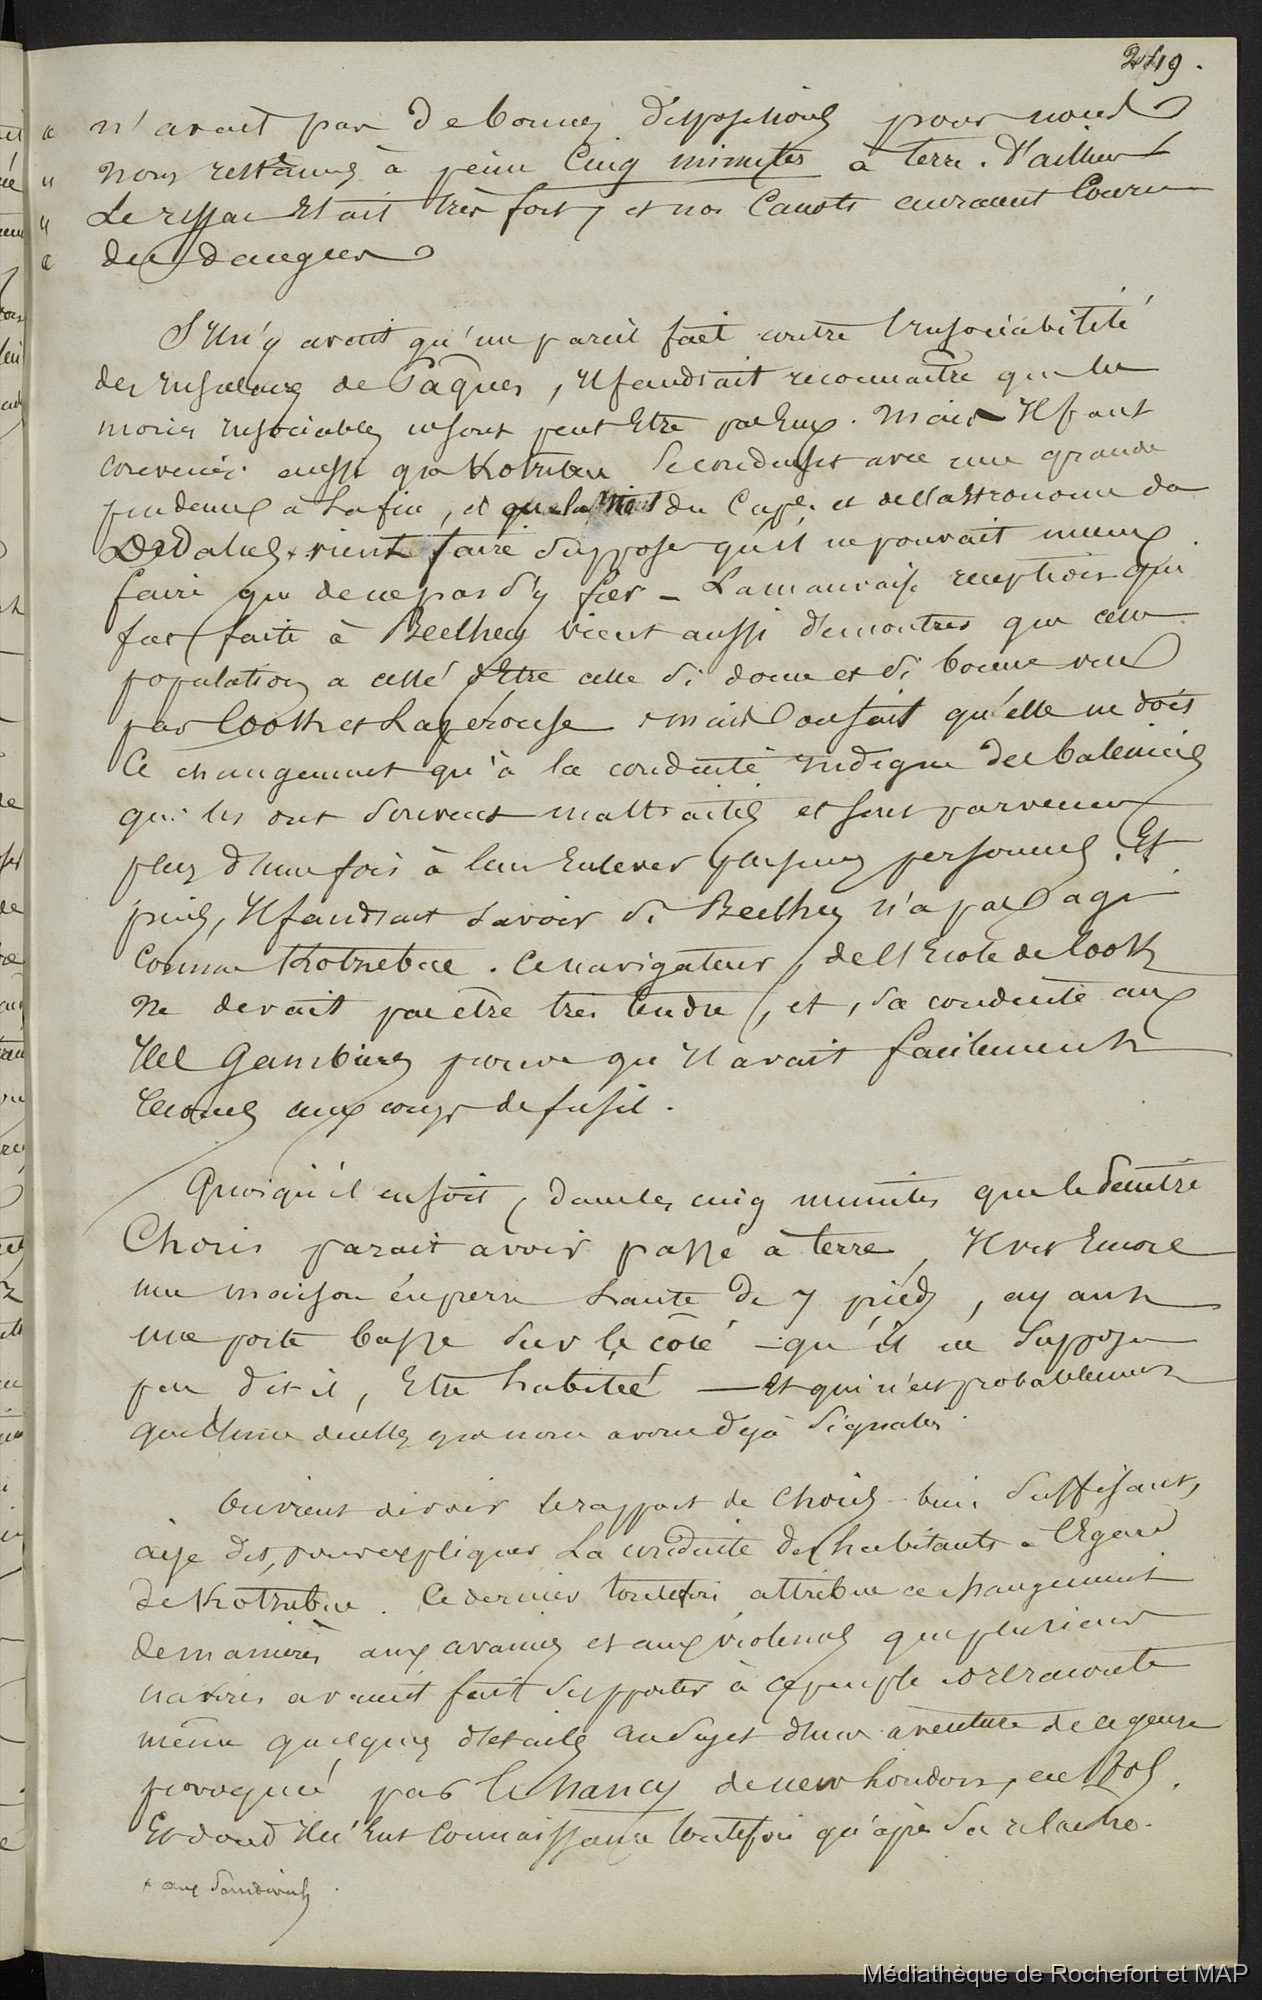 249.
« n'avait pas de bonnes dispositions pour nous
« nous restâmes à peine cinq minutes à terre. D'ailleurs
« Le ressac était très fort, et nos Canots auraient Couru
« des dangers
S'il n'y avait qu'un pareil fait contre l'insociabilité
des insulaires de Pâques, il faudrait reconnaître que les
moins insociables ne sont peut être pas eux. Mais il faut
convenir aussi que Kotzebue se conduisit avec une grande
prudence à la fin, et que la mort du Cap. et de l'astronome de
Dedales × vient faire supposer qu'il ne pouvait mieux
faire que de ne pas s'y fier – La mauvaise reception qui
fut faite à Beechey vient aussi démontrer que cette
population a cessé d'être celle si douce et si bonne vue
par Cook et Lapérouse mais on sait qu'elle ne doit
Ce changement qu'à la conduite indigne des baleiniers
qui les ont souvent maltraités et sont parvenus
plus d'une fois à leur enlever plusieurs personnes. Et
puis, il faudrait savoir si Beechey n'a pas agi
comme Kotzebue. Ce navigateur, de l'école de Cook
ne devait pas être très tendre, et, sa conduite aux
Iles Gambiers prouve qu'il avait facilement
recours aux coups de fusil.
Quoiqu'il en soit, dans les cinq minutes que le peintre
Choris parait avoir passé à terre, il vit encore
une maison en pierre haute de 7 pieds, ayant
une porte basse sur le côté – qu'il ne suppose
pas dit-il, être habitée — et qui n'est probablement
que l'une de celles que nous avons déjà signalés.
On vient de voir le rapport de Choris – bien suffisant,
ai-je dit, pour expliquer la conduite des habitants à l'égard
de Kotzebue. Ce dernier toutefois attribue ce changement
de manières aux avanies et aux violences que plusieurs
navires avaient fait supporter à ce peuple et raconte
même quelques détails au sujet d'une aventure de ce genre
provoquée par le Nancy de new London, en 1805.
Et dont il n'eut connaissance toutefois qu'après sa relache.
× aux Sandwich
Médiathèque de Rochefort et MAP